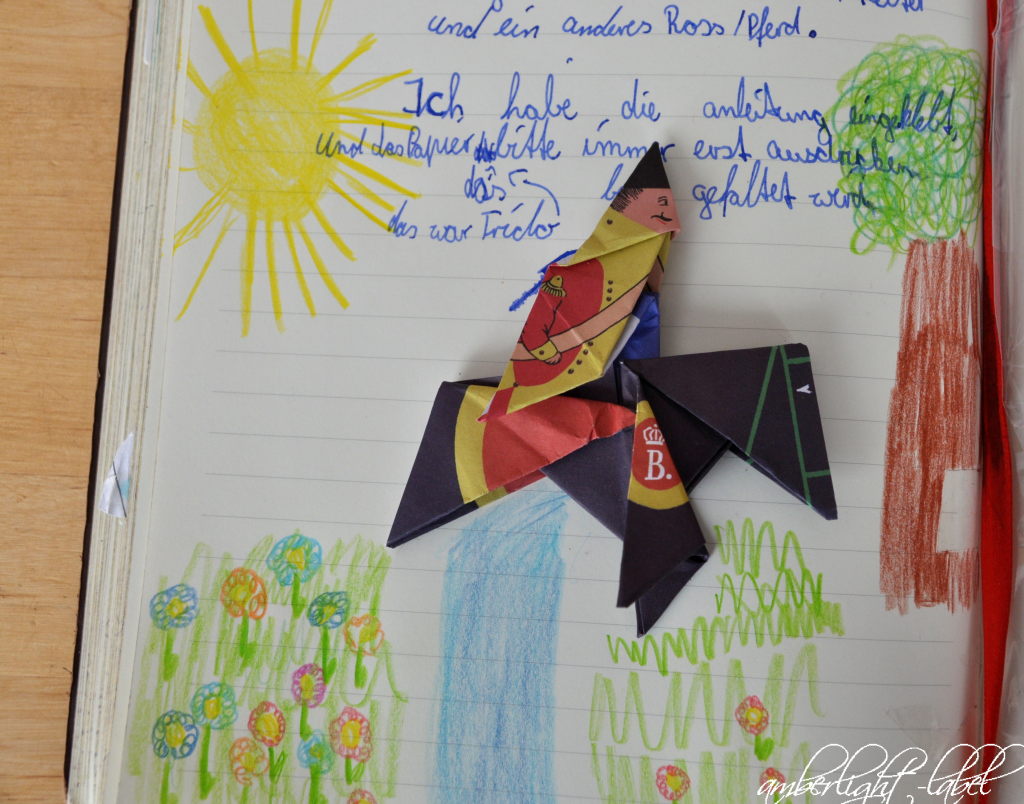 und ein anderes Ross/Pferd.
Ich habe die anleitung eingeklebt,
und das Papier bitte immer erst
das gefaltet wird
das war
B.
amberlight-label